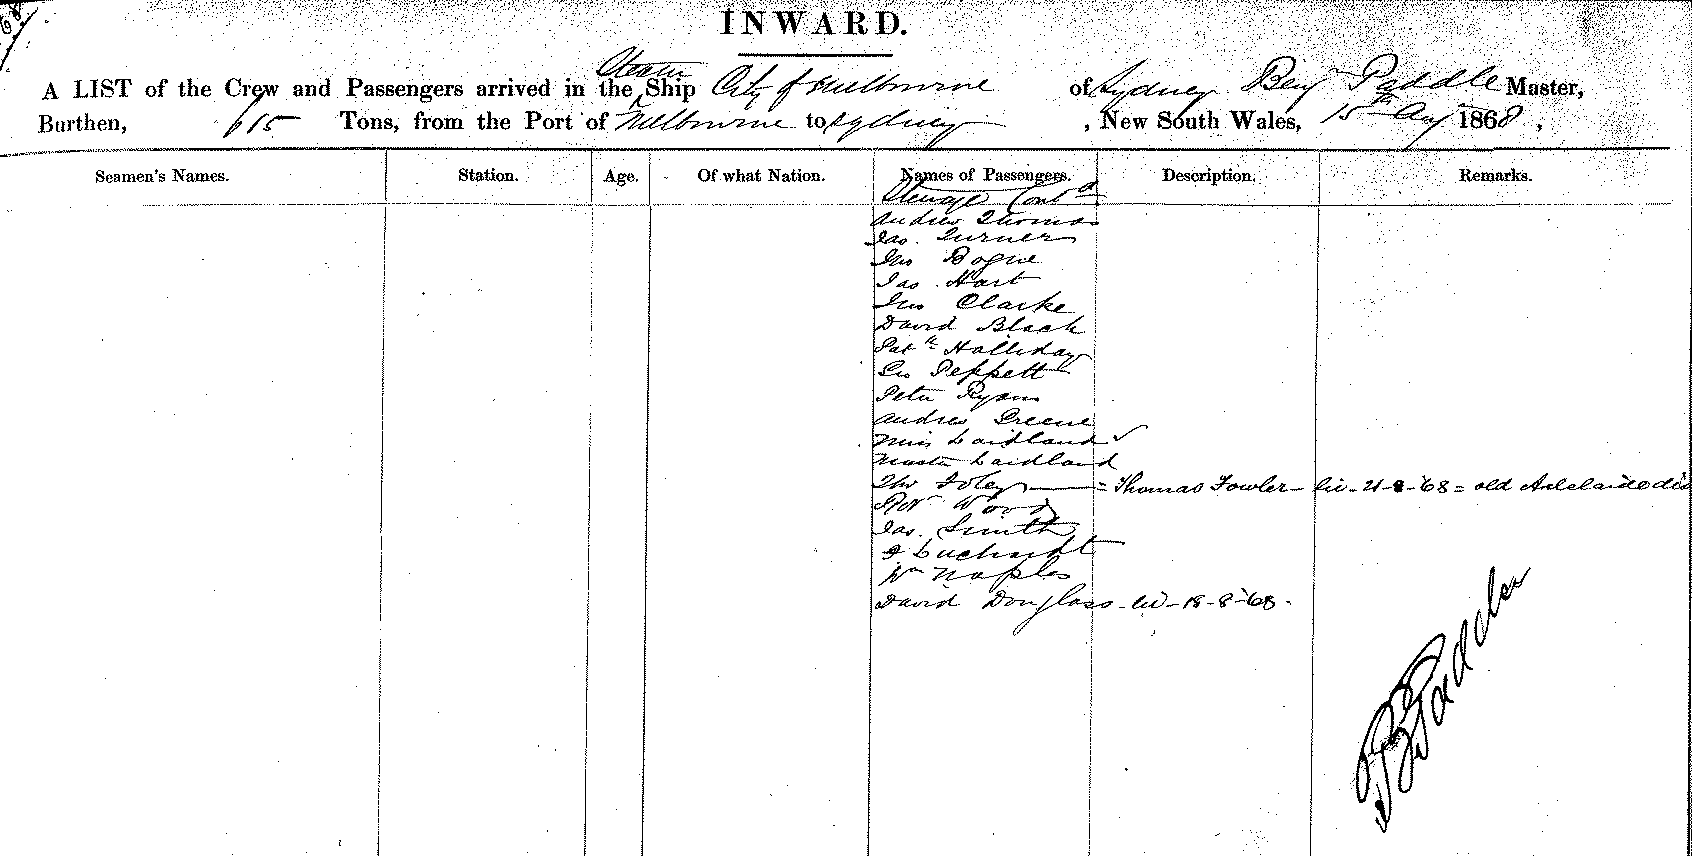 68
INWARD.
A LIST of the Crew and Passengers arrived in the Steam Ship City of Melbourne of Sydney Benj Paddle Master,
Burthen, 615 Tons, from the Port of Melbourne to Sydney, New South Wales, 15th Aug 1868,
Seamen's Names. Station. Age. Of what Nation. Names of Passengers. Description. Remarks.
Steerage Contd
Andrew Thomas
Jas. Turner
Jno Bogue
Jas Hart
Jno Clarke
David Black
Patk Halliday
Geo Peppett
Peter Ryan
Andrew Greene
Miss Laidland ✓
Master Laidland
Tho Foley = Thomas Fowler - - 21-8-'68 = old Adelaide
Robt Wood
Jas. Smith
Luchardt
Wm Naples
David Douglass - - 18-8-'68.
B Paddle